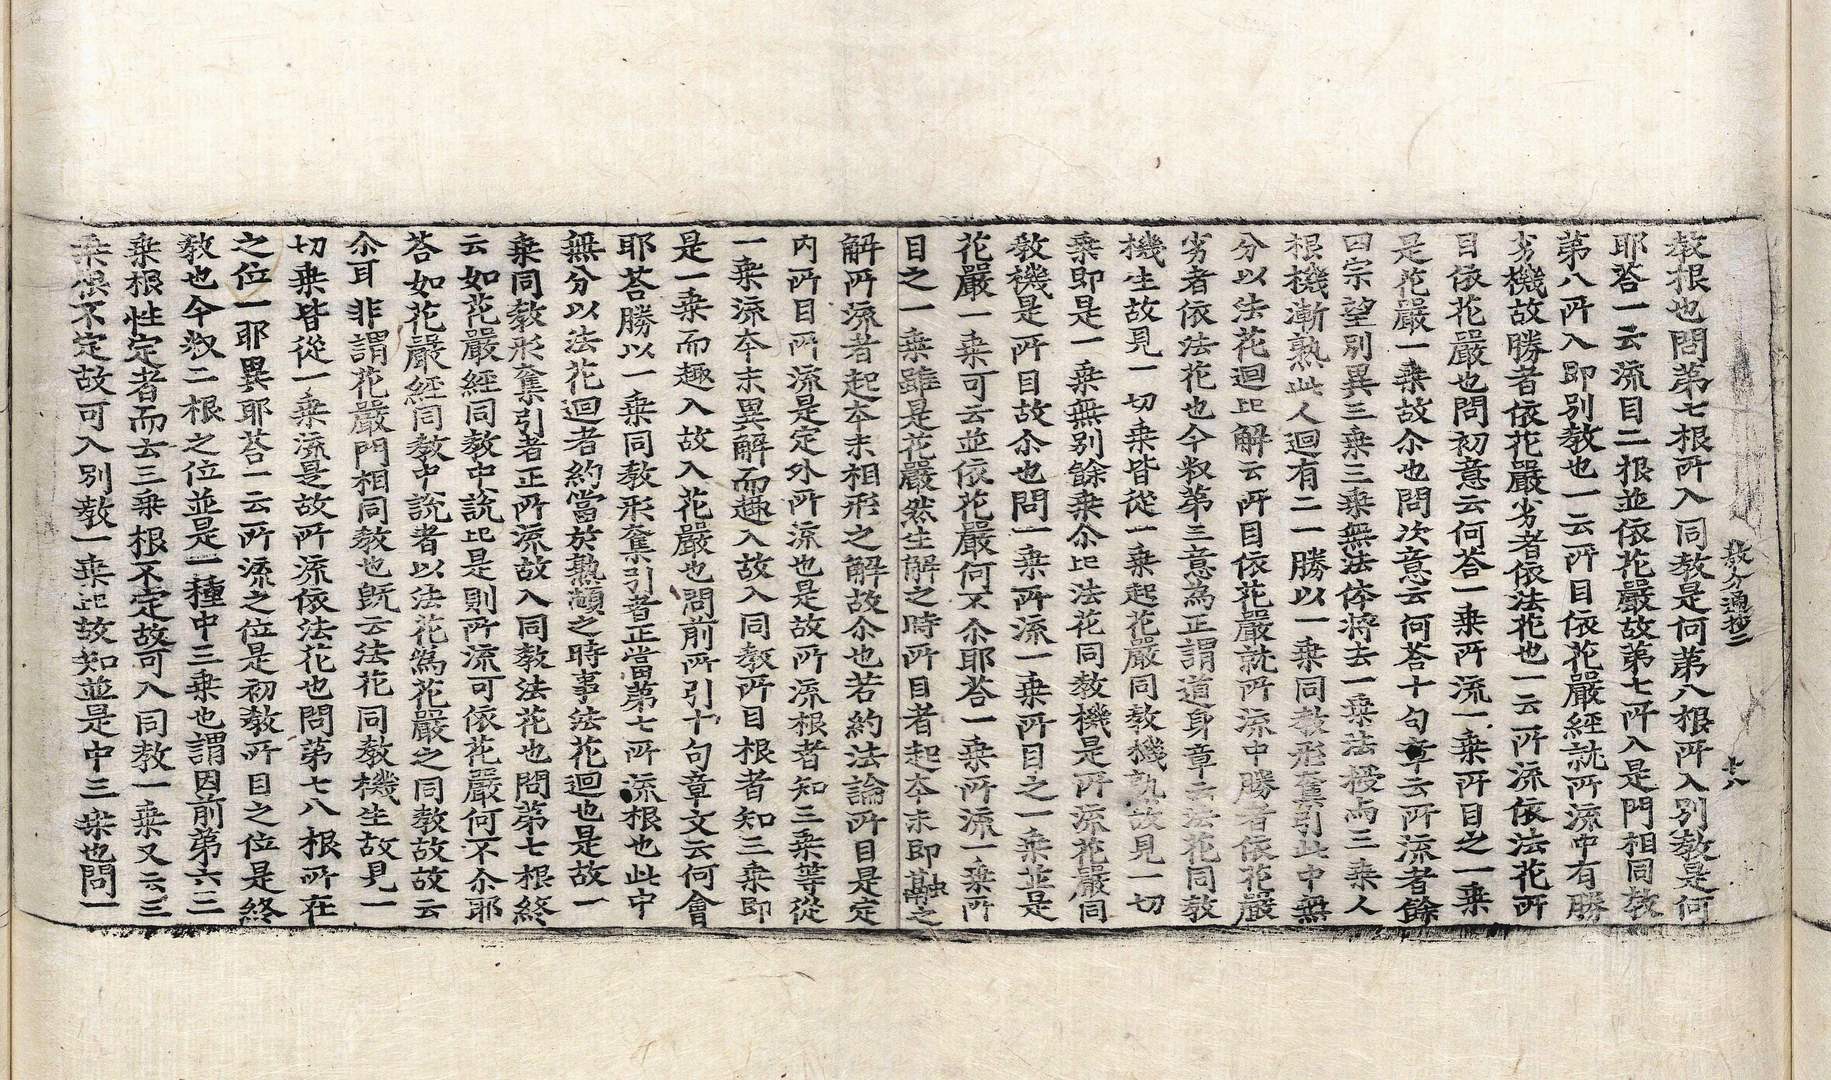 教分通抄二　十八
教根也問第七根所入同教是何第八根所入別教是何
耶荅一云流目二根並依花嚴故第七所入是門相同教
第八所入即別教也一云所目依花嚴經就所流中有勝
劣機故勝者依花嚴劣者依法花也一云所流依法花所
目依花嚴也問初意云何荅一乗所流一乗所目之一乗
是花嚴一乗故尒也問次意云何荅十句章云所流者餘
四宗望別異三乗三乗無法体将去一乗法授与三乗人
根機漸熟此人迴有二一勝以一乗同教形奪引此中無
分以法花迴比解云所目依花嚴就所流中勝者依花嚴
劣者依法花也今叙第三意為正謂道身章云法花同教
機生故見一切乗皆從一乗起花嚴同教機熟故見一切
乗即是一乗無別餘乗尒比法花同教機是所流花嚴同
教機是所目故尒也問一乗所流一乗所目之一乗並是
花嚴一乗可云並依花嚴何不尒耶荅一乗所流一乗所
目之一乗雖是花嚴然生解之時所目者起夲末即融之
解所流者起夲末相形之解故尒也若約法論所目是定
内所目所流是定外所流也是故所流根者知三乗等從
一乗流夲末異解而趣入故入同教所目根者知三乗即
是一乗而趣入故入花嚴也問前所引十句章文云何會
耶荅勝以一乗同教形奪引者正當第七所流根也此中
無分以法花迴者約當於熟顛之時事法花迴也是故一
乗同教形奪引者正所流故入同教法花也問第七根終
云如花嚴經同教中說比是則所流可依花嚴何不尒耶
荅如花嚴經同教中說者以法花為花嚴之同教故故云
尒耳非謂花嚴門相同教也旣云法花同教機生故見一
切乗皆從一乗流是故所流依法花也問第七八根所在
之位一耶異耶荅二云所流之位是初教所目之位是終
教也今叙二根之位並是一種中三乗也謂因前第六三
乗根性定者而去三乗根不定故可入同教一乗又云三
乗根不定故可入別教一乗比故知並是中三乗也問一